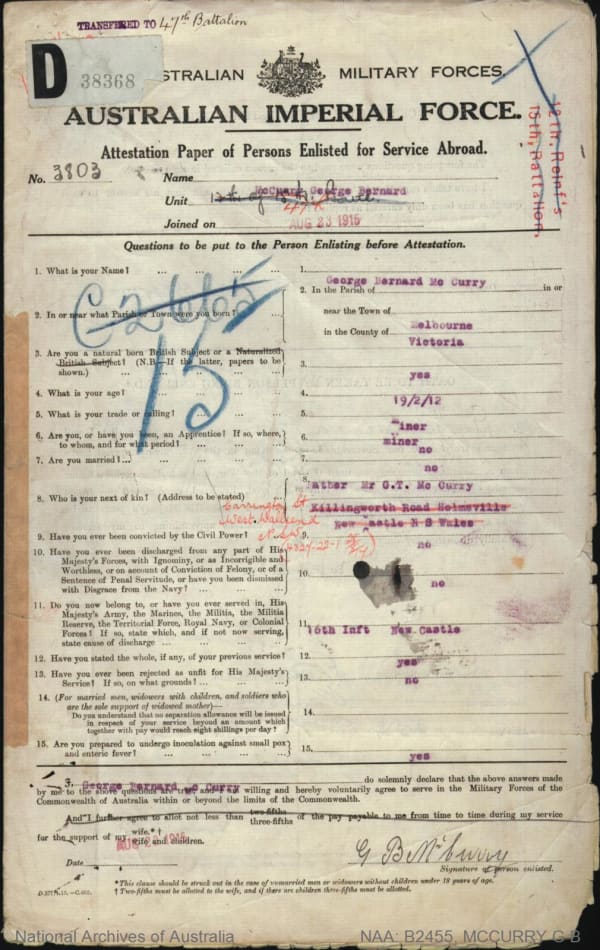 TRANSFERED TO 47th Battalion
D 38368
AUSTRALIAN MILITARY FORCES.
AUSTRALIAN IMPERIAL FORCE.
12th. Reinf's
15th, Battalion,
Attestation Paper of Persons Enlisted for Service Abroad.
No. 3803 Name McCurry George Bernard
Unit 12th of 15th
47th
Joined on AUG 23 1915
Questions to be put to the Person Enlisting before Attestation.
1. What is your Name? ... 1. George Bernard Mc Curry
2. In or near what Parish or Town were you born? ... 2. In the Parish of in or
near the Town of
in the County of Melbourne
Victoria
15
3. Are you a natural born British Subject or a Naturalized
British Subject? (N.B.—If the latter, papers to be
shown.) 3. yes
4. What is your age? ... 4. 19/2/12
5. What is your trade or calling? ... 5. miner
6. Are you, or have you been, an Apprentice? If so, where,
to whom, and for what period? ... 6. miner
no
7. Are you married? ... 7. no
8. Who is your next of kin? (Address to be stated) 8. Father Mr G.T. Mc Curry
Killingworth Road Holmesville
New Castle N S Wales
Carrington St
West Wallsend
N.S.W.
9. Have you ever been convicted by the Civil Power? 9. no
10. Have you ever been discharged from any part of His
Majesty's Forces, with Ignominy, or as Incorrigible and
Worthless, or on account of Conviction of Felony, or of a
Sentence of Penal Servitude, or have you been dismissed
with Disgrace from the Navy? ... 10. no
11. Do you now belong to, or have you ever served in, His
Majesty's Army, the Marines, the Militia, the Militia
Reserve, the Territorial Force, Royal Navy, or Colonial
Forces? If so, state which, and if not now serving,
state cause of discharge ... 11. 16th Inft New Castle
12. Have you stated the whole, if any, of your previous service? 12. yes
13. Have you ever been rejected as unfit for His Majesty's
Service? If so, on what grounds? ... 13. no
14. (For married men, widowers with children, and soldiers who
are the sole support of widowed mother)—
Do you understand that no separation allowance will be issued
in respect of your service beyond an amount which
together with pay would reach eight shillings per day? 14.
15. Are you prepared to undergo inoculation against small pox
and enteric fever? ... 15. yes
I, George Bernard Mc Curry do solemnly declare that the above answers made
by me to the above questions are true and I am willing and hereby voluntarily agree to serve in the Military Forces of the
Commonwealth of Australia within or beyond the limits of the Commonwealth.
And I further agree to allot not less than two-fifths three-fifths of the pay payable to me from time to time during my service
for the support of my wife.*†
wife and children.
Date AUG 23 1915 G B McCurry
Signature of person enlisted.
*This clause should be struck out in the case of unmarried men or widowers without children under 18 years of age.
† Two-fifths must be allotted to the wife, and if there are children three-fifths must be allotted.
National Archives of Australia NAA: B2455, MCCURRY G B